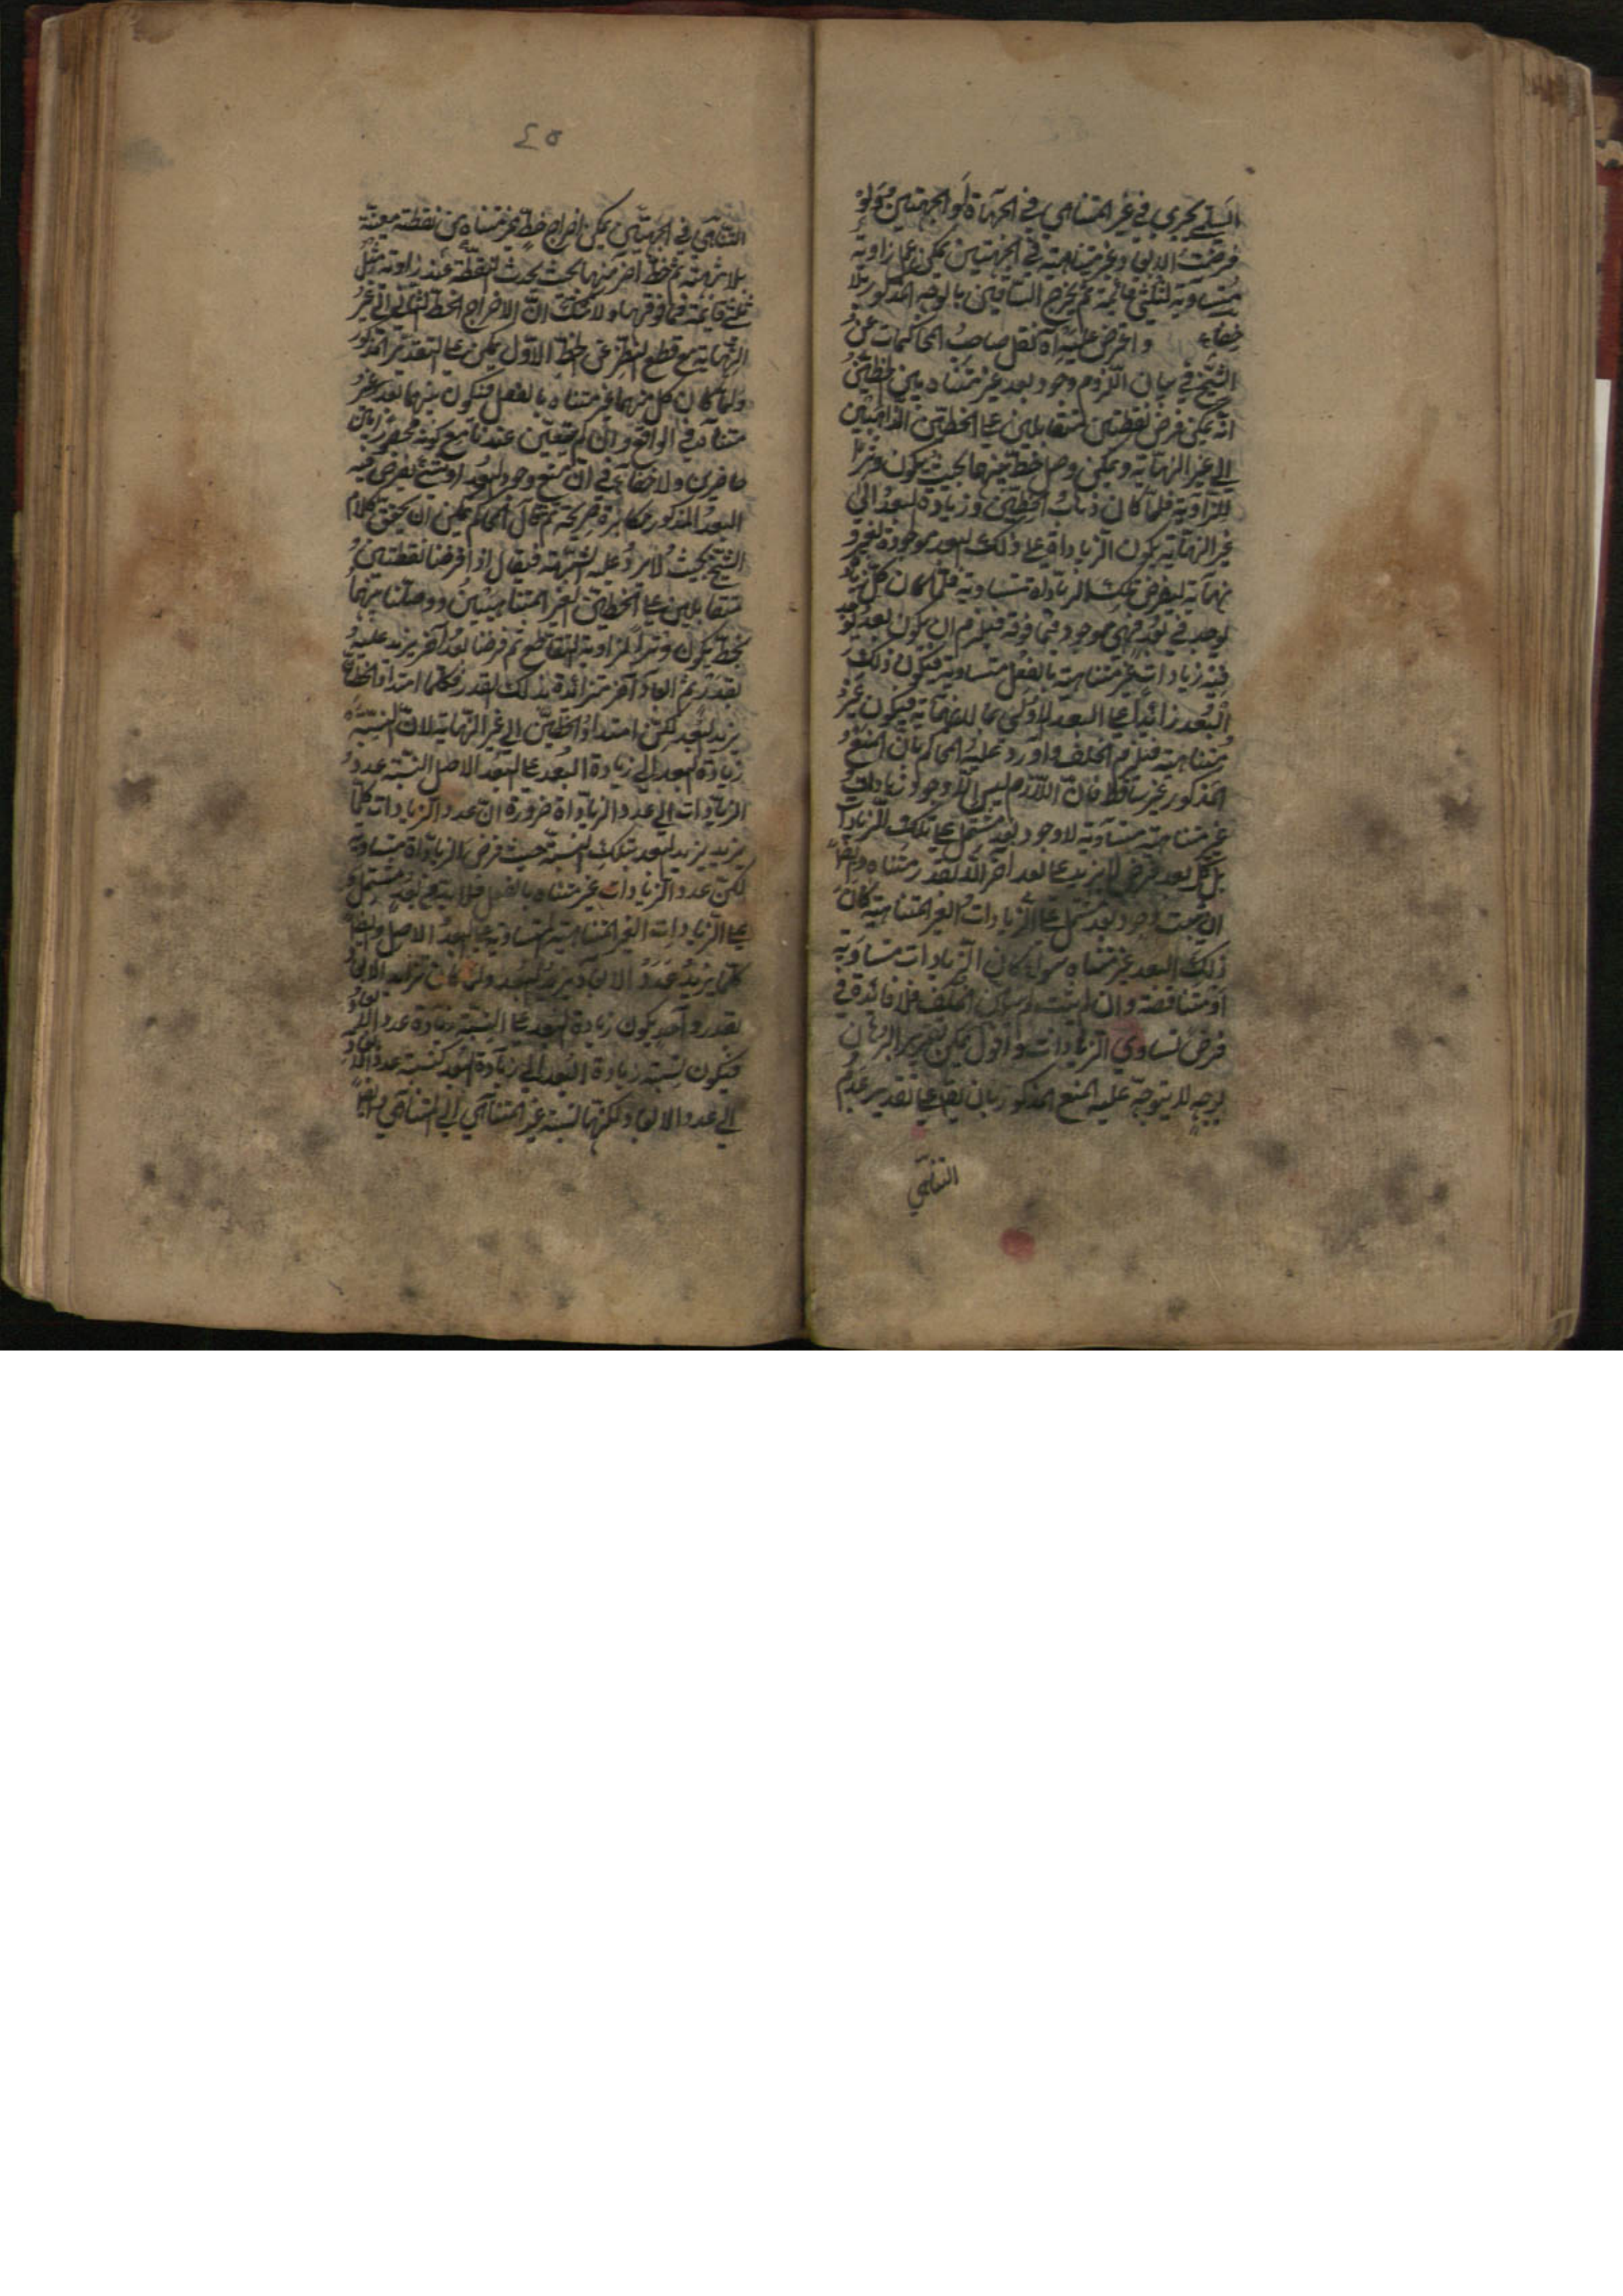 السلمي يجري في غير المتناهي في الجهات او الجهتين ولو
فرضت الابعاد غير متناهية في الجهتين يمكن عمل زاوية
مساوية لثلثي قائمة ثم يخرج الساقين بالوجه المذكور بلا
خفاء واعترض عليه اه نقل صاحب المحاكمات عن
الشيخ في بيان اللزوم وجود بعد غير متناه بين الخطين
انه يمكن فرض نقطتين متقابلين على الخطين الذاهبين
الى غير النهاية ويمكن وصل خط بينهما بحيث يكون وترا
للزاوية فلما كان ذهاب الخطين وزيادة البعد الى
غير النهاية يكون الزيادات على ذلك البعد موجودة لغير
نهاية ليفرض تلك الزيادات متساوية فلما كان كل زيادة
توجد في بعد فهي موجودة فيما فوقه فيلزم ان يكون بعد يوجد
فيه زيادات غير متناهية بالفعل متساوية فيكون ذلك
البعد زائدا على البعد الاول بما لا نهاية فيكون غير
متناهية فيلزم الخلف واورد عليه المحاكم بان المنع
المذكور غير ساقط فان اللازم ليس الا وجود زيادات
غير متناهية متساوية لا وجود بعد مشتمل على تلك الزيادات
بل كل بعد فرض لا يزيد على بعد آخر الا بقدر متناه وايضا
ان ثبت وجود بعد مشتمل على الزيادات الغير المتناهية كان
ذلك البعد غير متناه سواء كان الزيادات متساوية
او متناقصة وان لم يثبت لم يكن الخلف فلا فائدة في
فرض تساوي الزيادات واقول يمكن تقرير البرهان
بوجه لا يتوجه عليه المنع المذكور بان يقال على تقدير عدم
التناهي
٤٥
التناهي في الجهتين يمكن اخراج خط غير متناه من نقطة معينة
بلا نهاية ثم خط آخر منها بحيث يحدث النقطة عند زاوية مثل
ثلثي قائمة فما فوقها ولا شك ان الاخراج الخط الثاني الى غير
النهاية مع قطع النظر عن الخط الاول يمكن على التقدير المذكور
ولما كان كل منهما غير متناه بالفعل فيكون بينهما بعد غير
متناه في الواقع وان لم يتعين عندنا مع كونه محصورا بين
حاصرين ولا خفاء في ان منع وجود البعد او منع فرض فيه
البعد المذكور مكابرة صريحة ثم قال المحاكم يمكن ان يحقق كلام
الشيخ بحيث لا يرد عليه الشبهة فيقال اذا فرضنا نقطتين
متقابلين على الخطين الغير المتناهيين ووصلنا بينهما
بخط يكون وترا لزاوية التقاطع ثم فرضنا بعد آخر يزيد عليه
بقدر ثم ابعاد آخر متزائدة بذلك القدر فكلما امتد الخطان
يزيد البعد لكن امتداد الخطين الى غير النهاية لان نسبة
زيادة البعد الى زيادة البعد على البعد الاصل نسبة عدد
الزيادات الى عدد الزيادات ضرورة ان عدد الزيادات كلما
يزيد يزيد البعد بتلك النسبة حيث فرض الزيادات متساوية
لكن عدد الزيادات غير متناه بالفعل فلا بد من بعد مشتمل
على الزيادات الغير المتناهية المتساوية على البعد الاصل وايضا
كلما يزيد عدد الابعاد يزيد البعد ولما كان تزايد الابعاد
بقدر واحد يكون زيادة البعد على النسبة زيادة عدد الابعاد
فيكون نسبة زيادة البعد الى زيادة البعد كنسبة عدد الابعاد
الى عدد الابعاد ولكنها نسبة غير المتناهي الى المتناهي وايضا